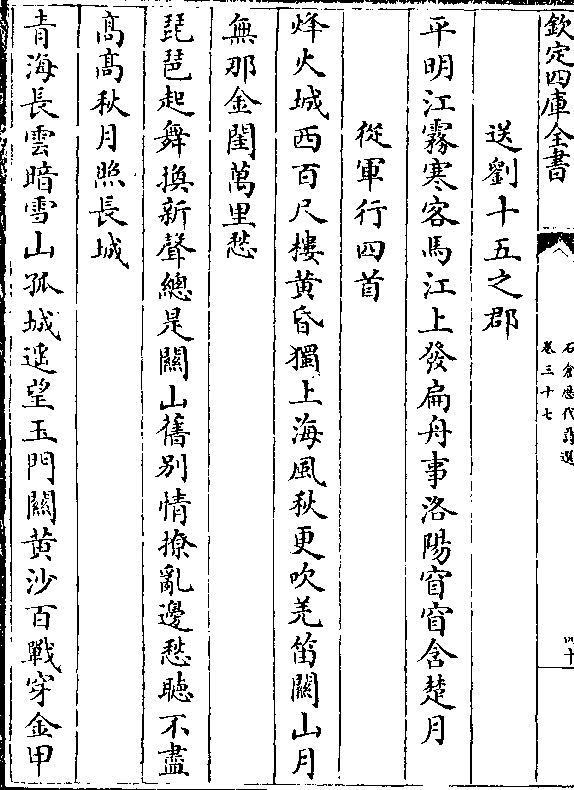 欽定四庫全書
石倉歷代詩選
卷三十七
四十
送劉十五之郡
平明江霧寒客馬江上發扁舟事洛陽窅窅含楚月
從軍行四首
烽火城西百尺樓黃昏獨上海風秋更吹羌笛關山月
無那金閨萬里愁
琵琶起舞換新聲總是關山舊別情撩亂邊愁聽不盡
髙髙秋月照長城
青海長雲暗雪山孤城遥望玉門關黃沙百戰穿金甲